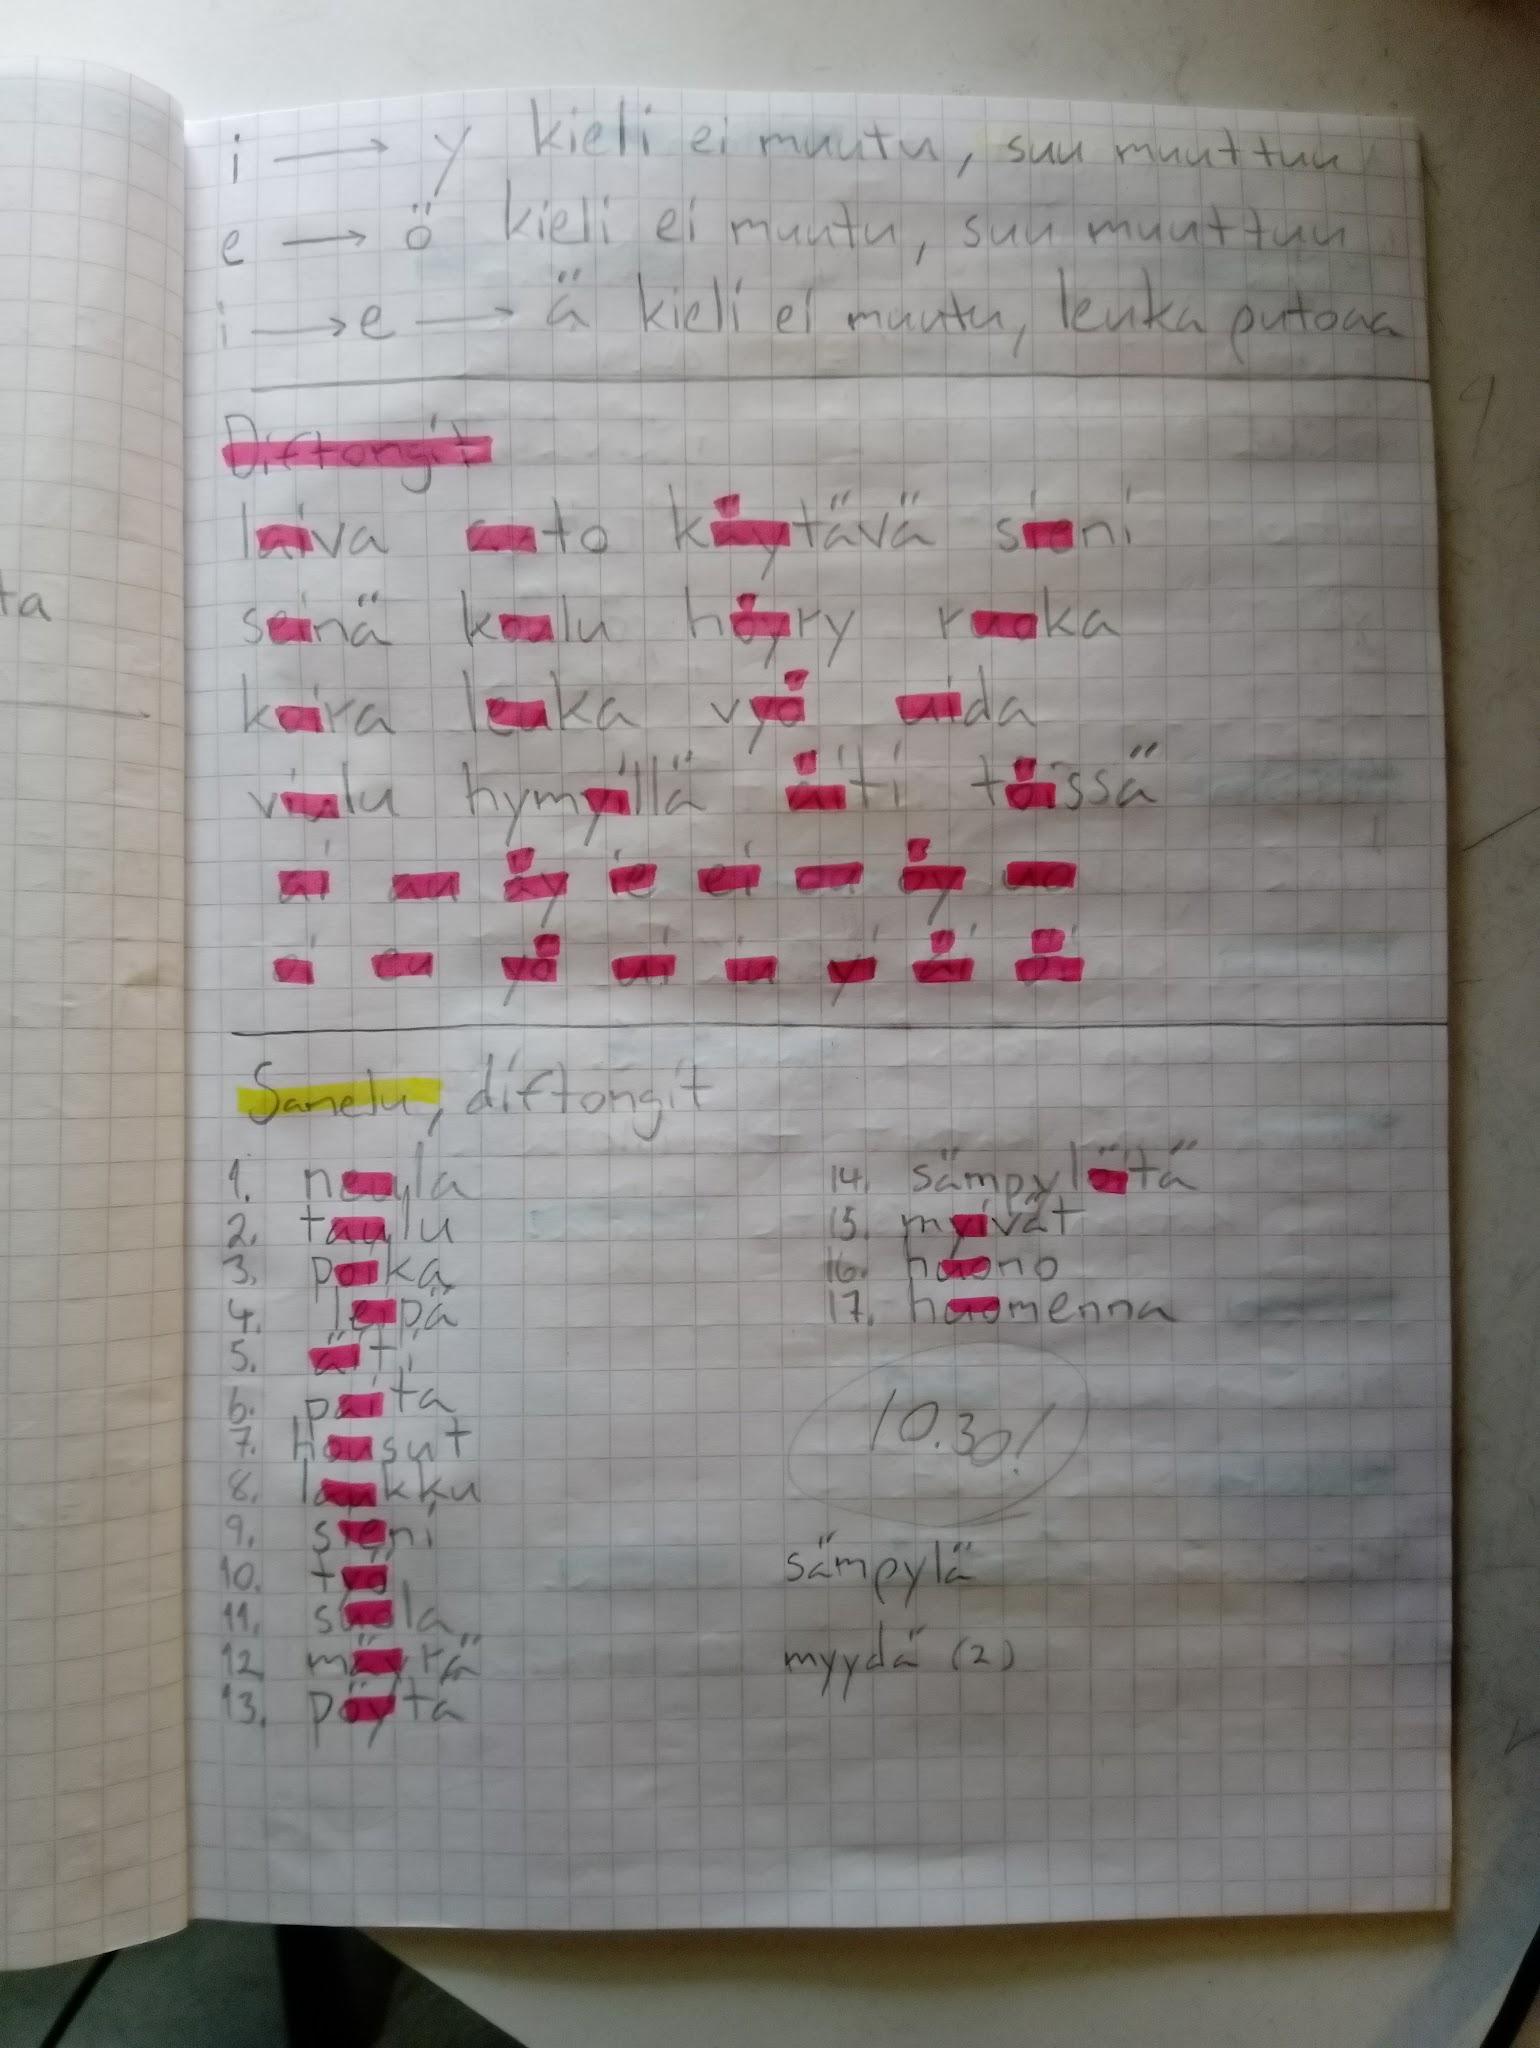 ta
i → y kieli ei muutu, suu muuttuu
e → ö kieli ei muutu, suu muuttuu
i → e → ä kieli ei muutu, leuka putoaa
Diftongit
laiva auto käytävä sieni
seinä koulu höyry ruoka
koira leuka vyö uida
viulu hymyillä äiti töissä
ai au äy ie ei ou öy uo
oi eu yö ui iu yi äi öi
Sanelu, diftongit
1. neula
2. taulu
3. poika
4. leipä
5. äiti
6. paita
7. housut
8. laukku
9. sieni
10. työ
11. suola
12 mäyrä
13. pöytä
14. sämpylöitä
15. myivät
16. huono
17. huomenna
10.30!
sämpylä
myydä (2)